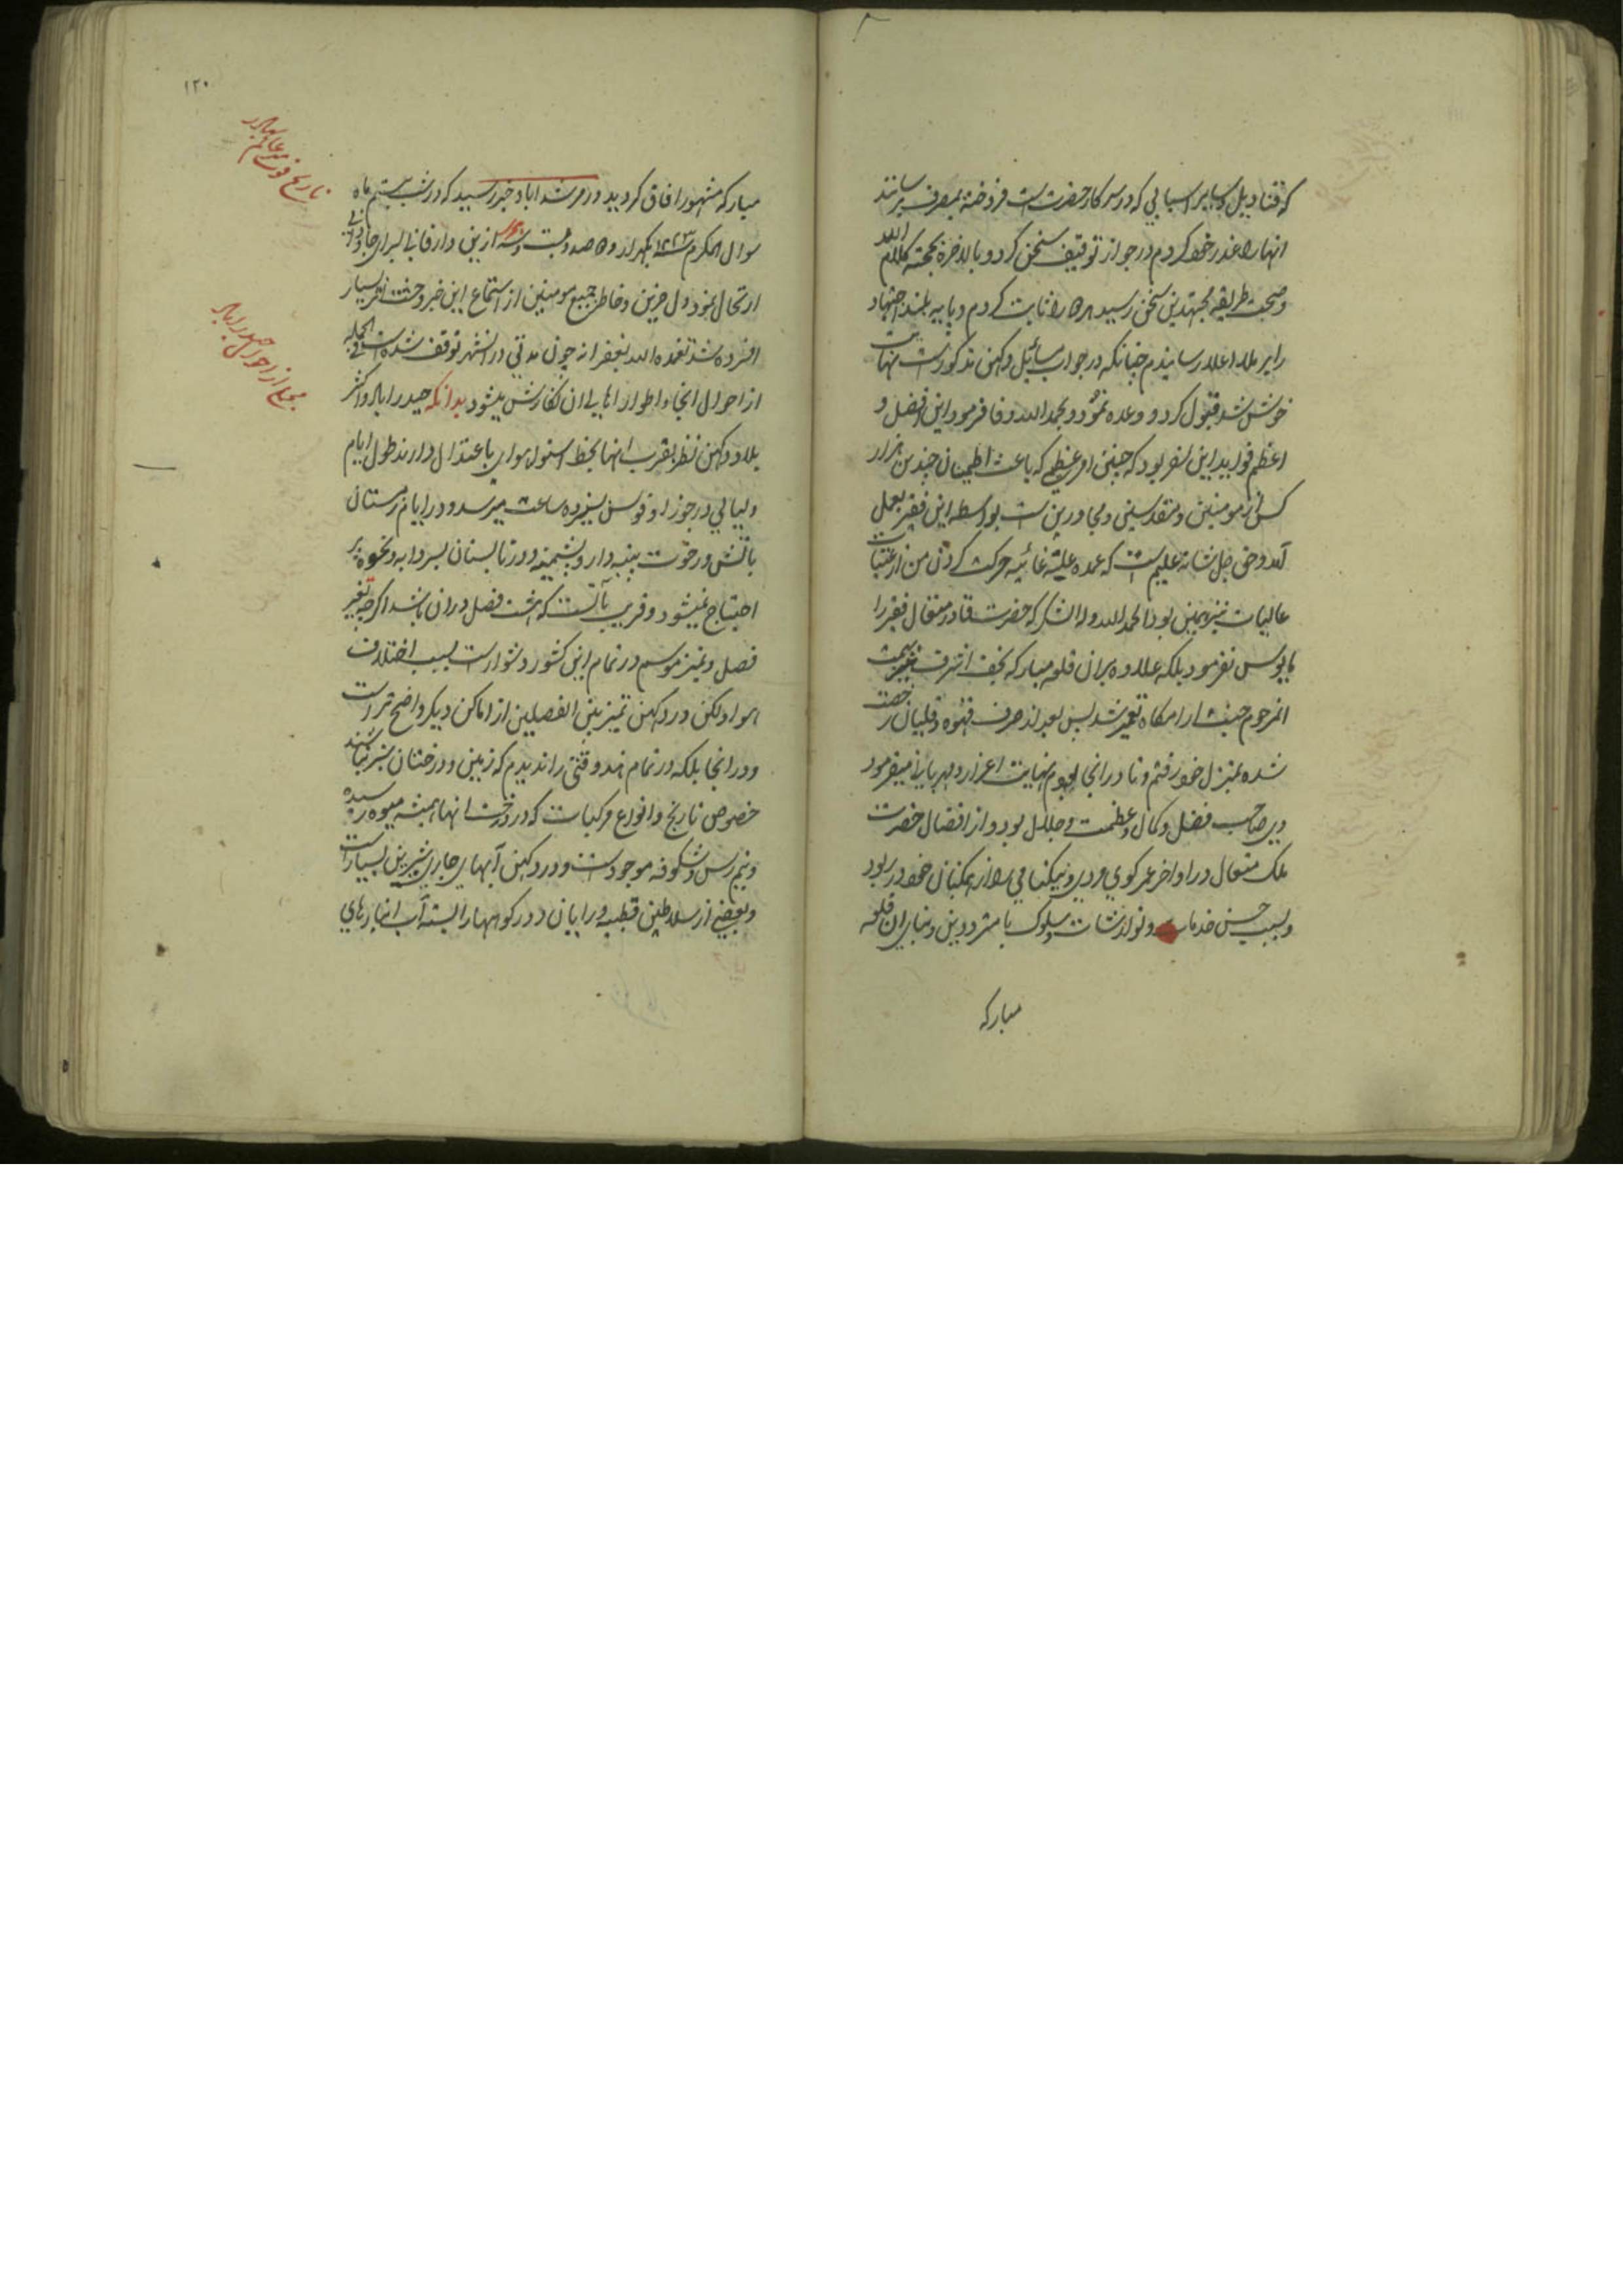 که قنادیل و سایر اسبابی که در سرکار حضرت است فروخته بمصرف برسانند
انها را عذر خود کردم در جواز توقیف سخن کرد و بالاخره بحجته کلام الله
و صحبت طریقه مجتهدین سخن رسید را ثابت کردم و پایه بلند اجتهاد
را بر ملاء اعلا رسانیدم چنانکه در جواب مسائیل دکهن مذکور است نهایت
خوش شد قبول کرد و وعده نمود و بحمد الله وفا فرمود این افضل و
اعظم فواید این سفر بود که چنین امر عظیم که باعث اطمینان چندین هزار
کس از مومنین و مقدسین و مجاورین است بواسطه این فقیر بعمل
آمد و حق جل شانه علیم است که عمده علة غائیه حرکت کردن من از عتبات
عالیات نیز همین بود الحمد لله و له الشکر که حضرت قادر متعال فقیر را
مایوس نفرمود بلکه علاوه بران قلعه مبارکه نجف اشرف نیز بهمت
انمرحوم جنت ارامکاه تعمیر شد پس بعد از صرف قهوه و قلیان رخصت
شده بمنزل خود رفتم و تا در انجا بودم نهایت اعزاز و مهربانی میفرمود
و بر صاحب فضل و کمال و عظمت و جلال بود و از افضال حضرت
ملک متعال در اواخر عمر کوی مردی و نیکنامی را از همکنان خود در ربود
و بسبب حسن خدمات و نوازشات و سلوک با مردو دین و بنای ان قلعه
مبارکه
۱۲۰
تاریخ فوت میر عالم بهادر
مبارکه مشهور افاق کردید و در مرشداباد خبر رسید که در شب بیستم ماه
شوال المکرم ۱۲۲۳ یکهزار و صد و بیست و سه ازین دار فانی بسرای جاودانی
ارتحال نمود دل حزین و خاطر جمیع مومنین از استماع این خبر وحشت اثر بسیار
افسرده شد تغمده الله بغفرانه چون مدتی در انشهر توقف شده است فی الجمله
مجملی از احوال حیدراباد
از احوال انجا و اطوار اهالی ان نکارش میشود بدانکه حیدراباد و اکثر
بلاد دکهن نظر بقرب انها بخط استوا هوای باعتدال دارند طول ایام
و لیالی در جوزا و قوس سیزده ساعت میرسد و در ایام زمستان
باتش و رخوت پنبه دار و پشمینه و در تابستان بسردابه و نحوه
احتیاج نمیشود و قریب بآنست که هشت فصل دران باشد اکرچه تغیر
فصل و تمیز موسم در تمام این کشور دشوار است بسبب اختلاف
هوا ولکن در دکهن تمیز بین الفصلین از اماکن دیکر واضح تر است
و در انجا بلکه در تمام هند وقتی را ندیدم که زمین و درختان سبز نباشند
خصوص نارنج و انواع مرکبات که در درخت انها همیشه میوه رسیده
و نیم رس و شکوفه موجود است و در دکهن آبهای جاری شیرین بسیار است
و بعضی از سلاطین قطبیه و رایان دور کوهها را بسته آب انبارهای